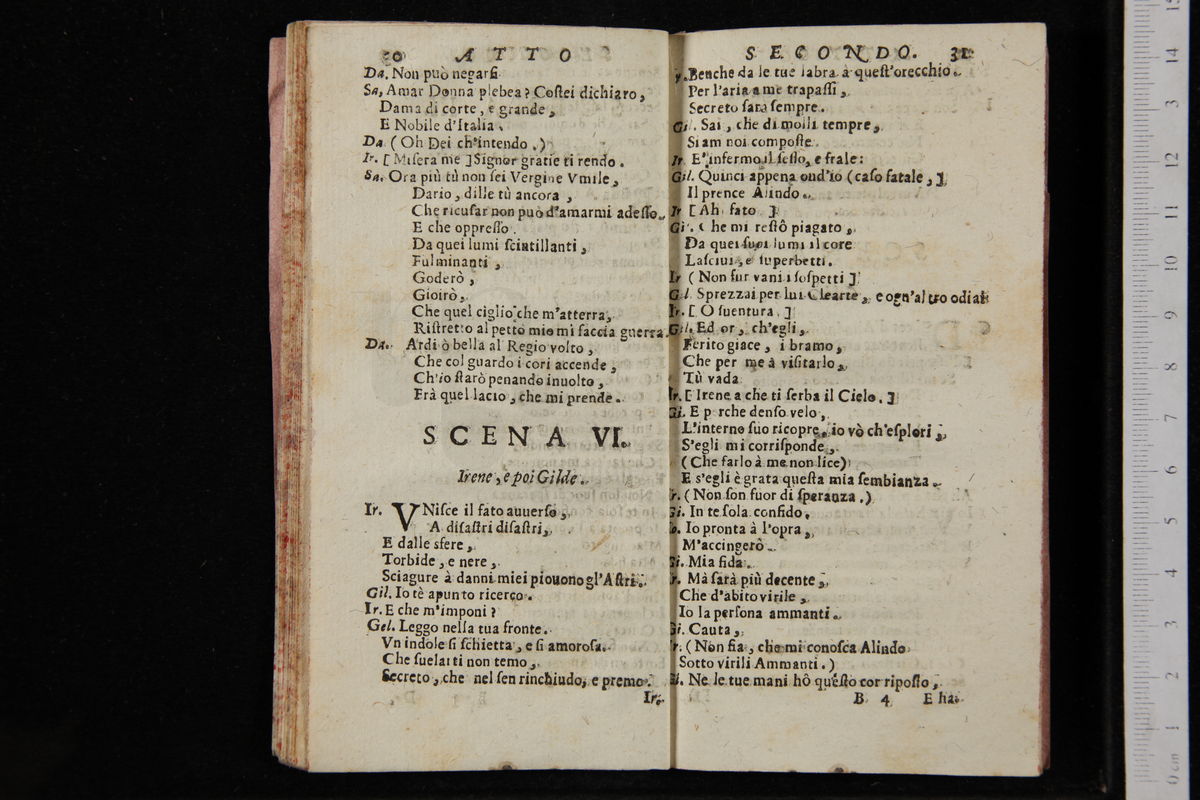 30 ATTO
Da. Non può negarſi
Sa, Amar Donna plebea? Coſtei dichiaro,
Dama di corte, e grande,
E Nobile d'Italia.
Da (Oh Dei ch'intendo.)
Ir. [Miſera me] Signor gratie ti rendo.
Sa. Ora più tù non ſei Vergine Vmile,
Dario, dille tù ancora,
Che ricuſar non può d'amarmi adeſſo.
E che oppreſſo.
Da quei lumi ſcintillanti,
Fulminanti,
Goderò,
Gioirò,
Che quel ciglio che m'atterra,
Riſtretto al petto mio mi faccia guerra.
Da. Ardi ò bella al Regio volto,
Che col guardo i cori accende,
Ch'io ſtarò penando inuolto,
Frà quel lacio, che mi prende.
SCENA VI.
Irene, e poi Gilde.
Ir. VNiſce il fato auuerſo,
A diſaſtri diſaſtri,
E dalle sfere,
Torbide, e nere,
Sciagure à danni miei piouono gl'Aſtri.
Gil. Io tè apunto ricerco.
Ir. E che m'imponi?
Gel. Leggo nella tua fronte.
Vn indole ſi ſchietta, e ſi amoroſa.
Che ſuelarti non temo,
Secreto, che nel ſen rinchiudo, e premo.
Ir.
SECONDO. 31
Benche da le tue labra à queſt'orecchio.
Per l'aria a me trapaſſi,
Secreto ſarà ſempre.
Gil. Sai, che di molli tempre,
Siam noi compoſte.
Ir E' infermo il ſeſſo, e frale:
Gil. Quinci appena ond'io (caſo fatale,]
Il prence Alindo.
Ir [Ah fato]
Gi. Che mi reſtô piagato,
Da quei ſuoi lumi il core
Laſciui, e ſuperbetti.
Ir (Non fur vani i ſoſpetti]
Gil. Sprezzai per lui Clearte, e ogn'altro odiai
Ir. [O ſuentura.]
Gil. Ed or, ch'egli,
Ferito giace, i bramo,
Che per me à viſitarlo,
Tù vada
Ir. [Irene a che ti ſerba il Cielo.]
Gi. E perche denſo velo,
L'interno ſuo ricopre, io vò ch'eſplori,
S'egli mi corriſponde,
(Che farlo à me non lice)
E s'egli è grata queſta mia ſembianza.
Ir. (Non ſon fuor di ſperanza.)
Gi. In te ſola confido,
Io pronta à l'opra,
M'accingerò.
Gi. Mia fida.
Ir. Mà ſarà più decente,
Che d'abito virile,
Io la perſona ammanti.
Gi. Cauta,
Ir. (Non fia, che mi conoſca Alindo
Sotto virili Ammanti.)
Gi. Ne le tue mani hô queſto cor ripoſto,
B 4 E ha